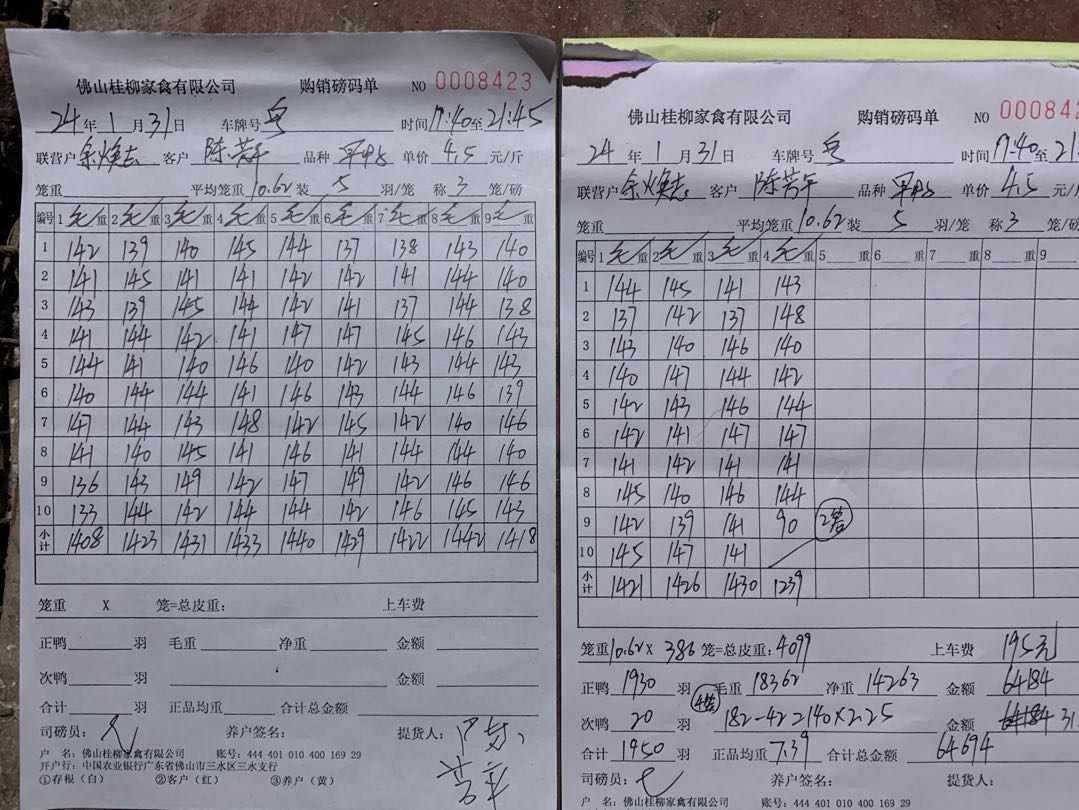 佛山桂柳家禽有限公司 购销磅码单 NO 0008423
24年1月31日 车牌号 时间17:40至21:45
联营户 余焕志 客户 陈芳平 品种 单价4.5元/斤
笼重 平均笼重10.62装5羽/笼 称3笼/磅
编号 1毛重 2毛重 3毛重 4毛重 5毛重 6毛重 7毛重 8毛重 9毛重
1 142 139 140 145 144 137 138 143 140
2 141 145 141 141 142 142 141 144 140
3 143 139 145 144 142 141 137 144 138
4 141 144 142 141 147 147 145 146 143
5 144 141 140 146 140 142 143 144 143
6 140 144 144 141 146 143 144 146 139
7 147 144 143 148 142 145 142 140 146
8 141 140 145 141 146 141 144 144 140
9 136 143 149 142 147 149 142 146 146
10 133 144 142 144 144 142 146 145 143
小计 1408 1423 1431 1433 1440 1429 1422 1442 1418
笼重 X 笼=总皮重: 上车费
正鸭 羽 毛重 净重 金额
次鸭 羽 金额
合计 羽 正品均重 合计总金额
司磅员: 养户签名: 提货人:
户 名:佛山桂柳家禽有限公司 账号:444 401 010 400 169 29
开户行:中国农业银行广东省佛山市三水区三水支行
①存根(白) ②客户(红) ③养户(黄)
佛山桂柳家禽有限公司 购销磅码单 NO 000842
24年1月31日 车牌号 时间17:40至21
联营户 余焕志 客户 陈芳平 品种 单价4.5元/
笼重 平均笼重10.62装5羽/笼 称3笼/磅
编号 1毛重 2毛重 3毛重 4毛重 5 重 6 重 7 重 8 重 9
1 144 145 141 143
2 137 142 137 148
3 143 140 146 140
4 140 147 144 142
5 142 143 146 144
6 142 141 147 147
7 141 142 141 141
8 145 140 146 144
9 142 139 141 90 2笼
10 145 147 141
小计 1421 1426 1430 1239
笼重10.62X386笼=总皮重:4099 上车费 195元
正鸭1930羽 毛重18362 净重14263 金额64184
次鸭20羽 4笼 182-42=140×2.25 金额 31
合计1950羽 正品均重7.39 合计总金额64694
司磅员: 养户签名: 提货人:
户 名:佛山桂柳家禽有限公司 账号:444 401 010 400 169 29